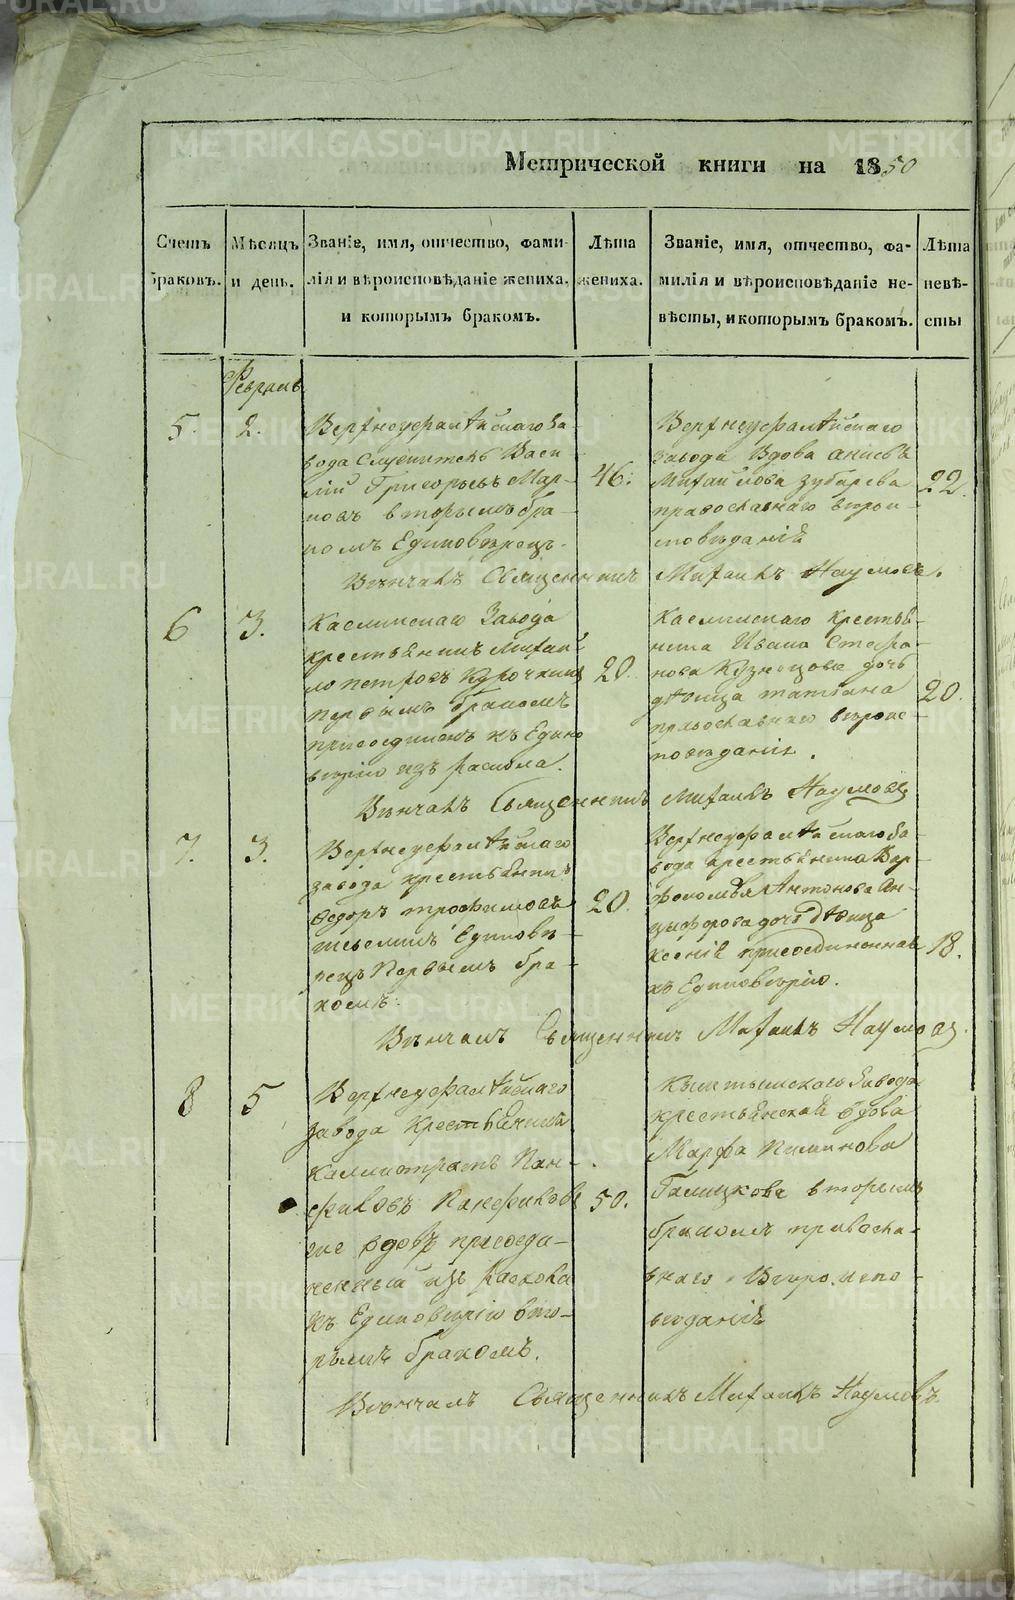 Метрической книги на 1850
Счетъ браковъ.
Мѣсяцъ и день.
Званіе, имя, отчество, фами-
лія и вѣроисповѣданіе жениха,
и которымъ бракомъ.
Лѣта жениха.
Званіе, имя, отчество, фа-
милія и вѣроисповѣданіе не-
вѣсты, и которымъ бракомъ.
Лѣта невѣ-
сты
Февраль
5.
2.
Верхнеуфалѣйскаго за-
вода Служитель Васи
лій Григорьевъ Мар-
ковъ вторымъ бра-
комъ Единовѣрецъ.
46.
Верхнеуфалѣйскаго
завода Вдова Анисья
Михайлова Зубарева
православнаго вѣрои-
сповѣданія
22.
Вѣнчалъ Священникъ Михаилъ Наумовъ.
6
3.
Каслинскаго Завода
крестьянинъ Михай
ло Петровъ Курочкинъ
первымъ бракомъ
присоединенъ къ Едино
вѣрію изъ раскола.
20.
Каслинскаго крестья-
нина Ивана Стефа-
нова Кузнецова дочь
дѣвица Татіана
православнаго вѣроис-
повѣданія.
20.
Вѣнчалъ Священникъ Михаилъ Наумовъ
7.
3.
Верхнеуфалѣйскаго
завода крестьянинъ
Ѳедоръ Трофимовъ
Единовѣ-
рецъ Первымъ бра-
комъ.
20.
Верхнеуфалѣйскаго за-
вода крестьянина Вар-
фоломѣя Антонова Ан-
цыферова дочь дѣвица
Ксенія присоединенная
къ Единовѣрію.
18.
Вѣнчалъ Священникъ Михаилъ Наумовъ.
8
5
Верхнеуфалѣйскаго
завода Крестьянинъ
Каллистратъ Пан-
филовъ Панфиловъ
же вдовъ присоеди-
ненный изъ раскола
къ Единовѣрію вто-
рымъ бракомъ.
50.
Кыштымскаго Завода
крестьянская вдова
Марфа Пименова
Галицкова вторымъ
бракомъ правосла-
внаго Вѣроиспо-
вѣданія
Вѣнчалъ Священникъ Михаилъ Наумовъ.
METRIKI.GASO-URAL.RU